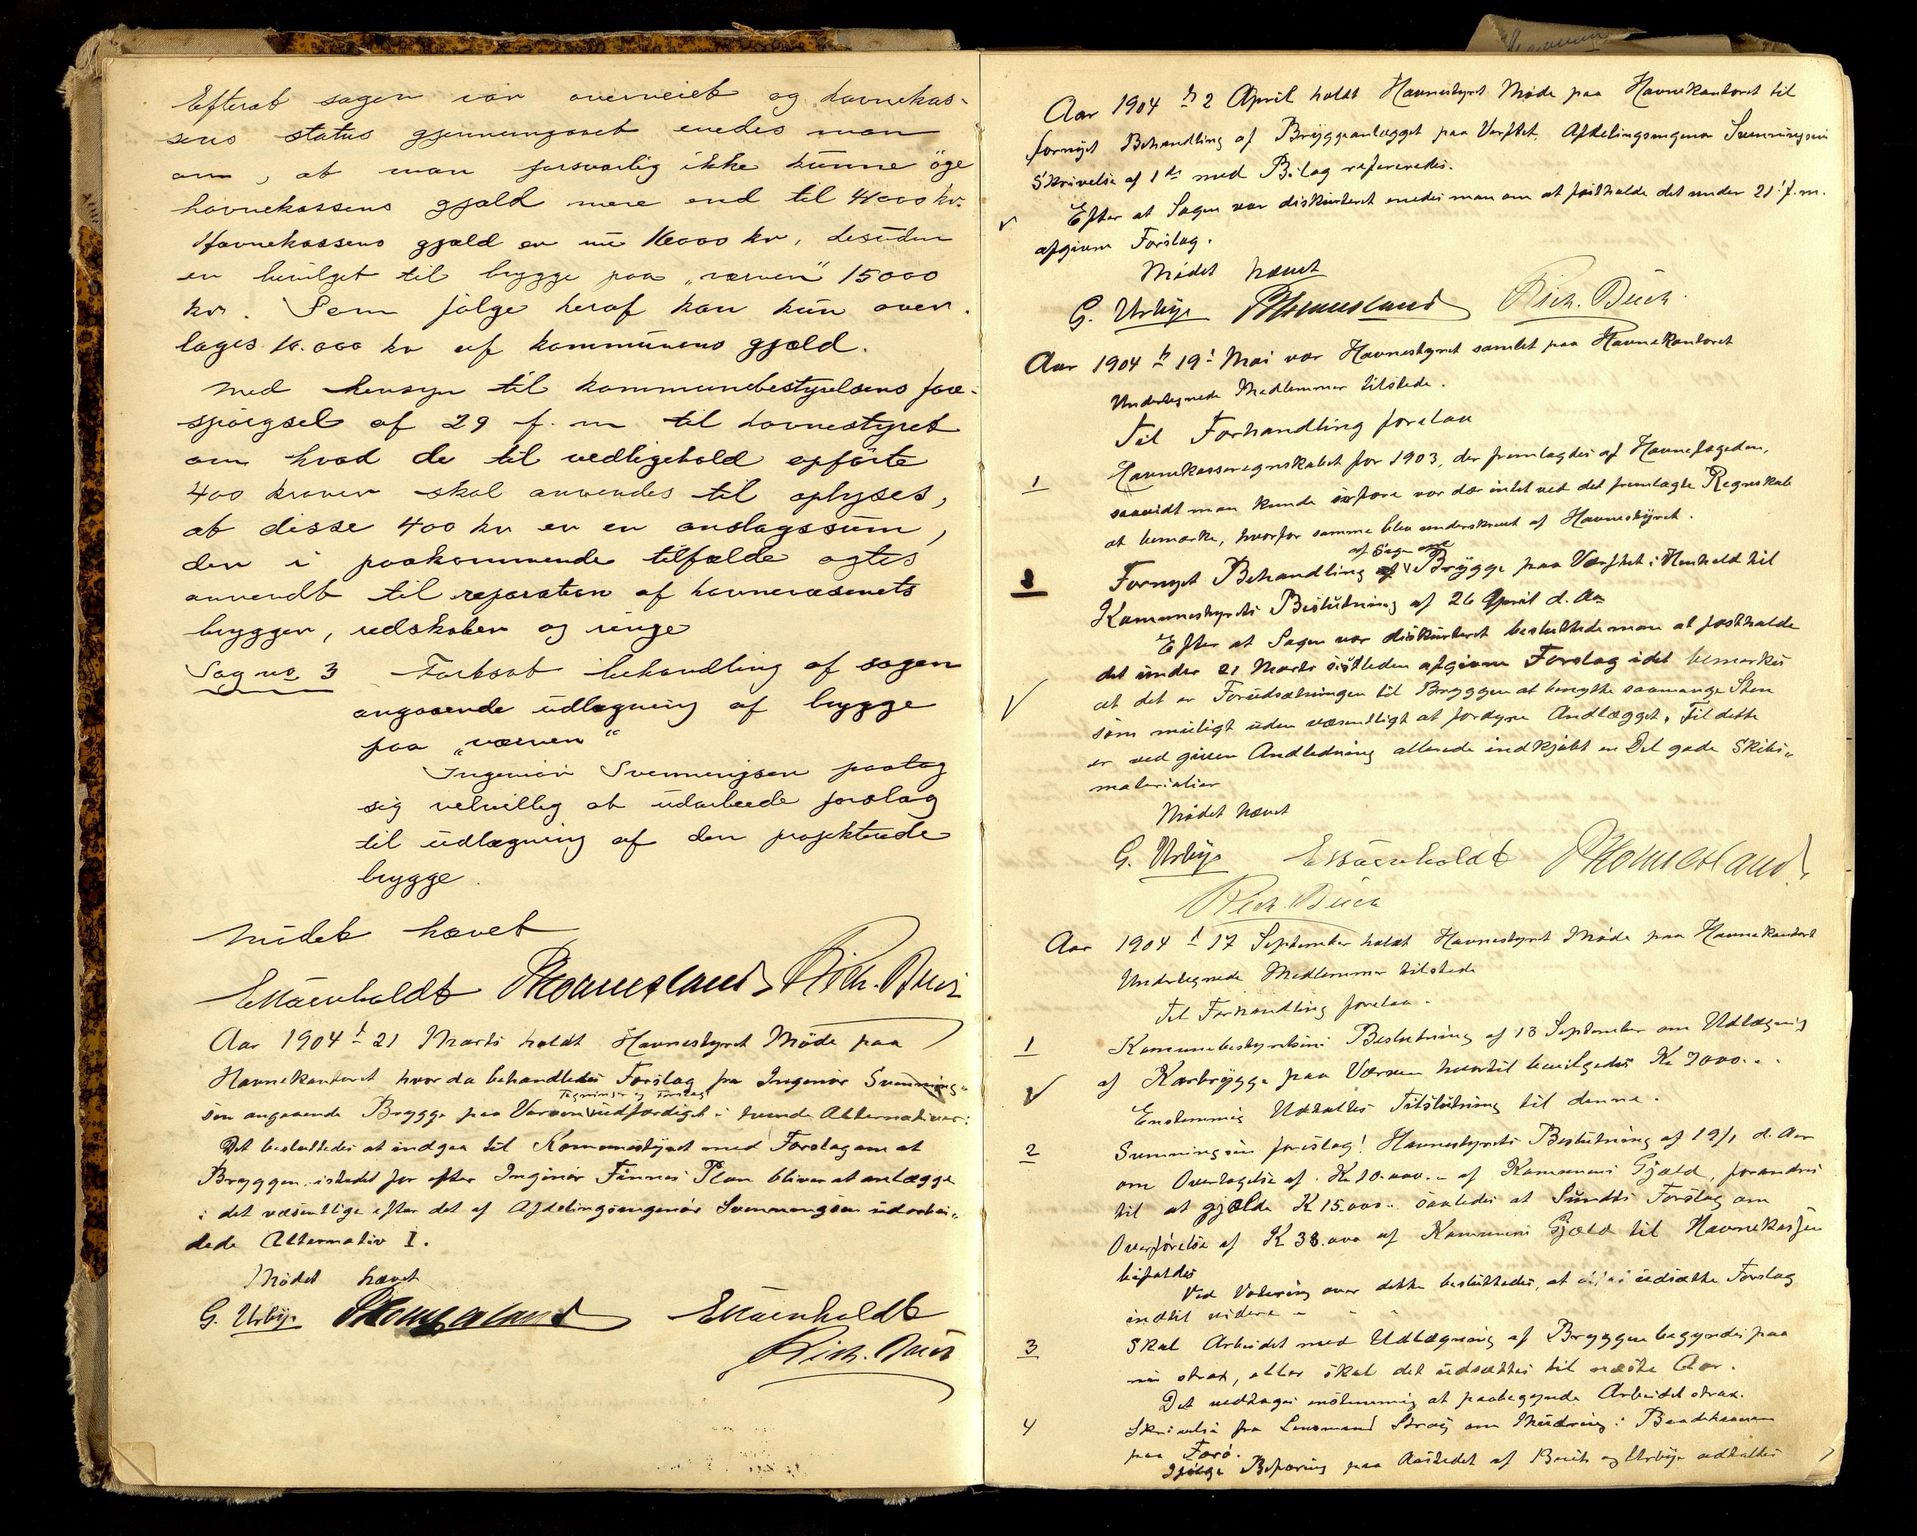 Efterat sagen var overveiet og havnekas-
sens status gjennemgaaet enedes man
om, at man forsvarlig ikke kunne øge
havnekassens gjæld mere end til 41000 kr.
Havnekassens gjæld er nu 16000 kr, desuden
er bevilget til brygge paa „værven" 15000
kr. Som følge heraf kan kun over-
tages 10.000 kr af kommunens gjæld.
Med hensyn til kommunebestyrelsens fore-
spørgsel af 29 f. m til havnestyret
om hvad de til vedligehold opførte
400 kroner skal anvendes til oplyses,
at disse 400 kr er en anslagssum,
den i paakommende tilfælde agtes
anvendt til reparation af havnevæsenets
brygger, redskaber og ringe
Sag no 3 Fortsat behandling af sagen
angaaende udlægning af brygge
paa „værven"
Ingeniør Svenningsen paatog
sig velvillig at udarbeide forslag
til udlægning af den projekterede
brygge.
Mødet hævet
Rich. Buch
Aar 1904 d 21 Marts holdt Havnestyret Møde paa
Havnekontoret hvor da behandledes Forslag fra Ingeniør Svennings-
Tegninger og Forslag
sen angaaende Brygge paa Værven udfærdiget i tvende Alternativer:
Det besluttedes at indgaa til Kommunestyret med Forslag om at
Bryggen istedet for efter Ingeniør Finnes Plan bliver at anlægge
i det væsentlige efter det af Afdelingsingeniør Svenningsen udarbei-
dede Alternativ I.
Mødet hævet
G. Urbye
Rich. Buch
Aar 1904 d 2 April holdt Havnestyret Møde paa Havnekontoret til
fornyet Behandling af Bryggeanlægget paa Værftet. Afdelingsingeniør Svenningsens
Skrivelse af 1ds med Bilag refereredes.
Efter at Sagen var diskuteret enedes man om at fastholde det under 21' f. m.
afgivne Forslag.
Mødet hævet
G. Urbye Rich. Buch.
Aar 1904 d 19' Mai var Havnestyret samlet paa Havnekontoret
Undertegnede Medlemmer tilstede.
Til Forhandling forelaa
1 Havnekasseregnskabet for 1903, der fremlagdes af Havnefogeden,
saavidt man kunde erfare var der intet ved det fremlagte Regnskab
at bemærke, hvorfor samme blev underskrevet af Havnestyret.
af Sagen om
2 Fornyet Behandling Brygge paa Værftet i Henhold til
Kommunestyrets Beslutning af 26 April d. Aar
Efter at Sagen var diskuteret besluttede man at fastholde
det under 21 Marts sidstleden afgivne Forslag idet bemærkes
at det er Forudsætningen til Bryggen at benytte saamange Sten
som muligt uden væsentligt at fordyre Andlægget. Til dette
er ved given Andledning allerede indkjøbt en Del gode Skibs-
materialier
Mødet hævet
G. Urbye
Rich. Buch
Aar 1904 d 17 September holdt Havnestyret Møde paa Havnekontoret
Undertegnede Medlemmer tilstede
Til Forhandling forelaa.
1 Kommunebestyrelsens Beslutning af 13 September om Udlægning
af Karbrygge paa Værven hvortil bevilgedes Kr 7000.-
Enstemmig Udtaltes Tilslutning til denne.
2 Svenningsens forslag! Havnestyrets Beslutning af 19/1 d. Aar
om Overtagelse af Kr 10.000.- af Kommunens Gjæld, forandres
til at gjælde K 15.000.- saaledes at Forslag om
Overførelse af K 38.000 af Kommunens Gjæld til Havnekassen
bifaldes
Ved Votering over dette besluttedes, at udsætte Forslag
indtil videre -
3 Skal Arbeidet med Udlægning af Bryggen begyndes paa
nu strax, eller skal det udsættes til næste Aar.
Det vedtoges enstemmig at paabegynde Arbeidet strax.
4 Skrivelse fra Lensmand om Mudring i Baadehavnen
paa
Ifølge Befaring paa Aastedet af Buch og Urbye udtaltes